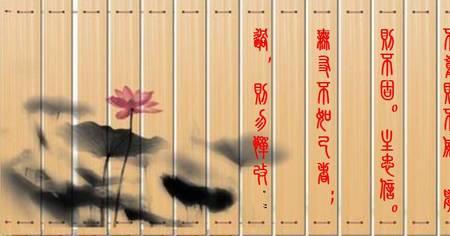 不重則不威 學
則不固。主忠信。
無友不如己者；
過，則勿憚改。”